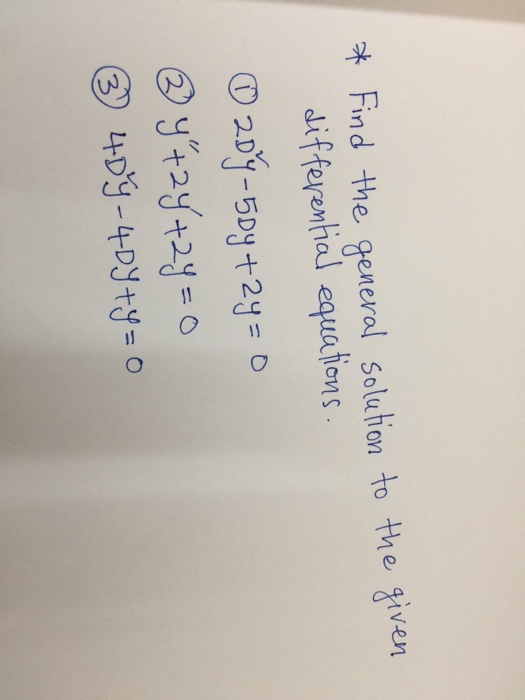 * Find the general solution to the given
differential equations.
① 2D²y - 5Dy + 2y = 0
② y" + 2y' + 2y = 0
③ 4D²y - 4Dy + y = 0